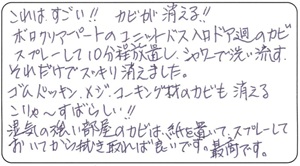 これは、すごい!! カビが消える!!
ボロクソアパートのユニットバス入口ドア週のカビ
スプレーして10分程放置し、シャワーで洗い流す。
それだけでスッキリ消えました。
ゴムパッキン、メジ、コーキング材のカビも消える
こりゃ〜すばらしい!!
湿気の強い部屋のカビは、紙を置いて、スプレーして
おいてから拭き取れば良いです。最高です。